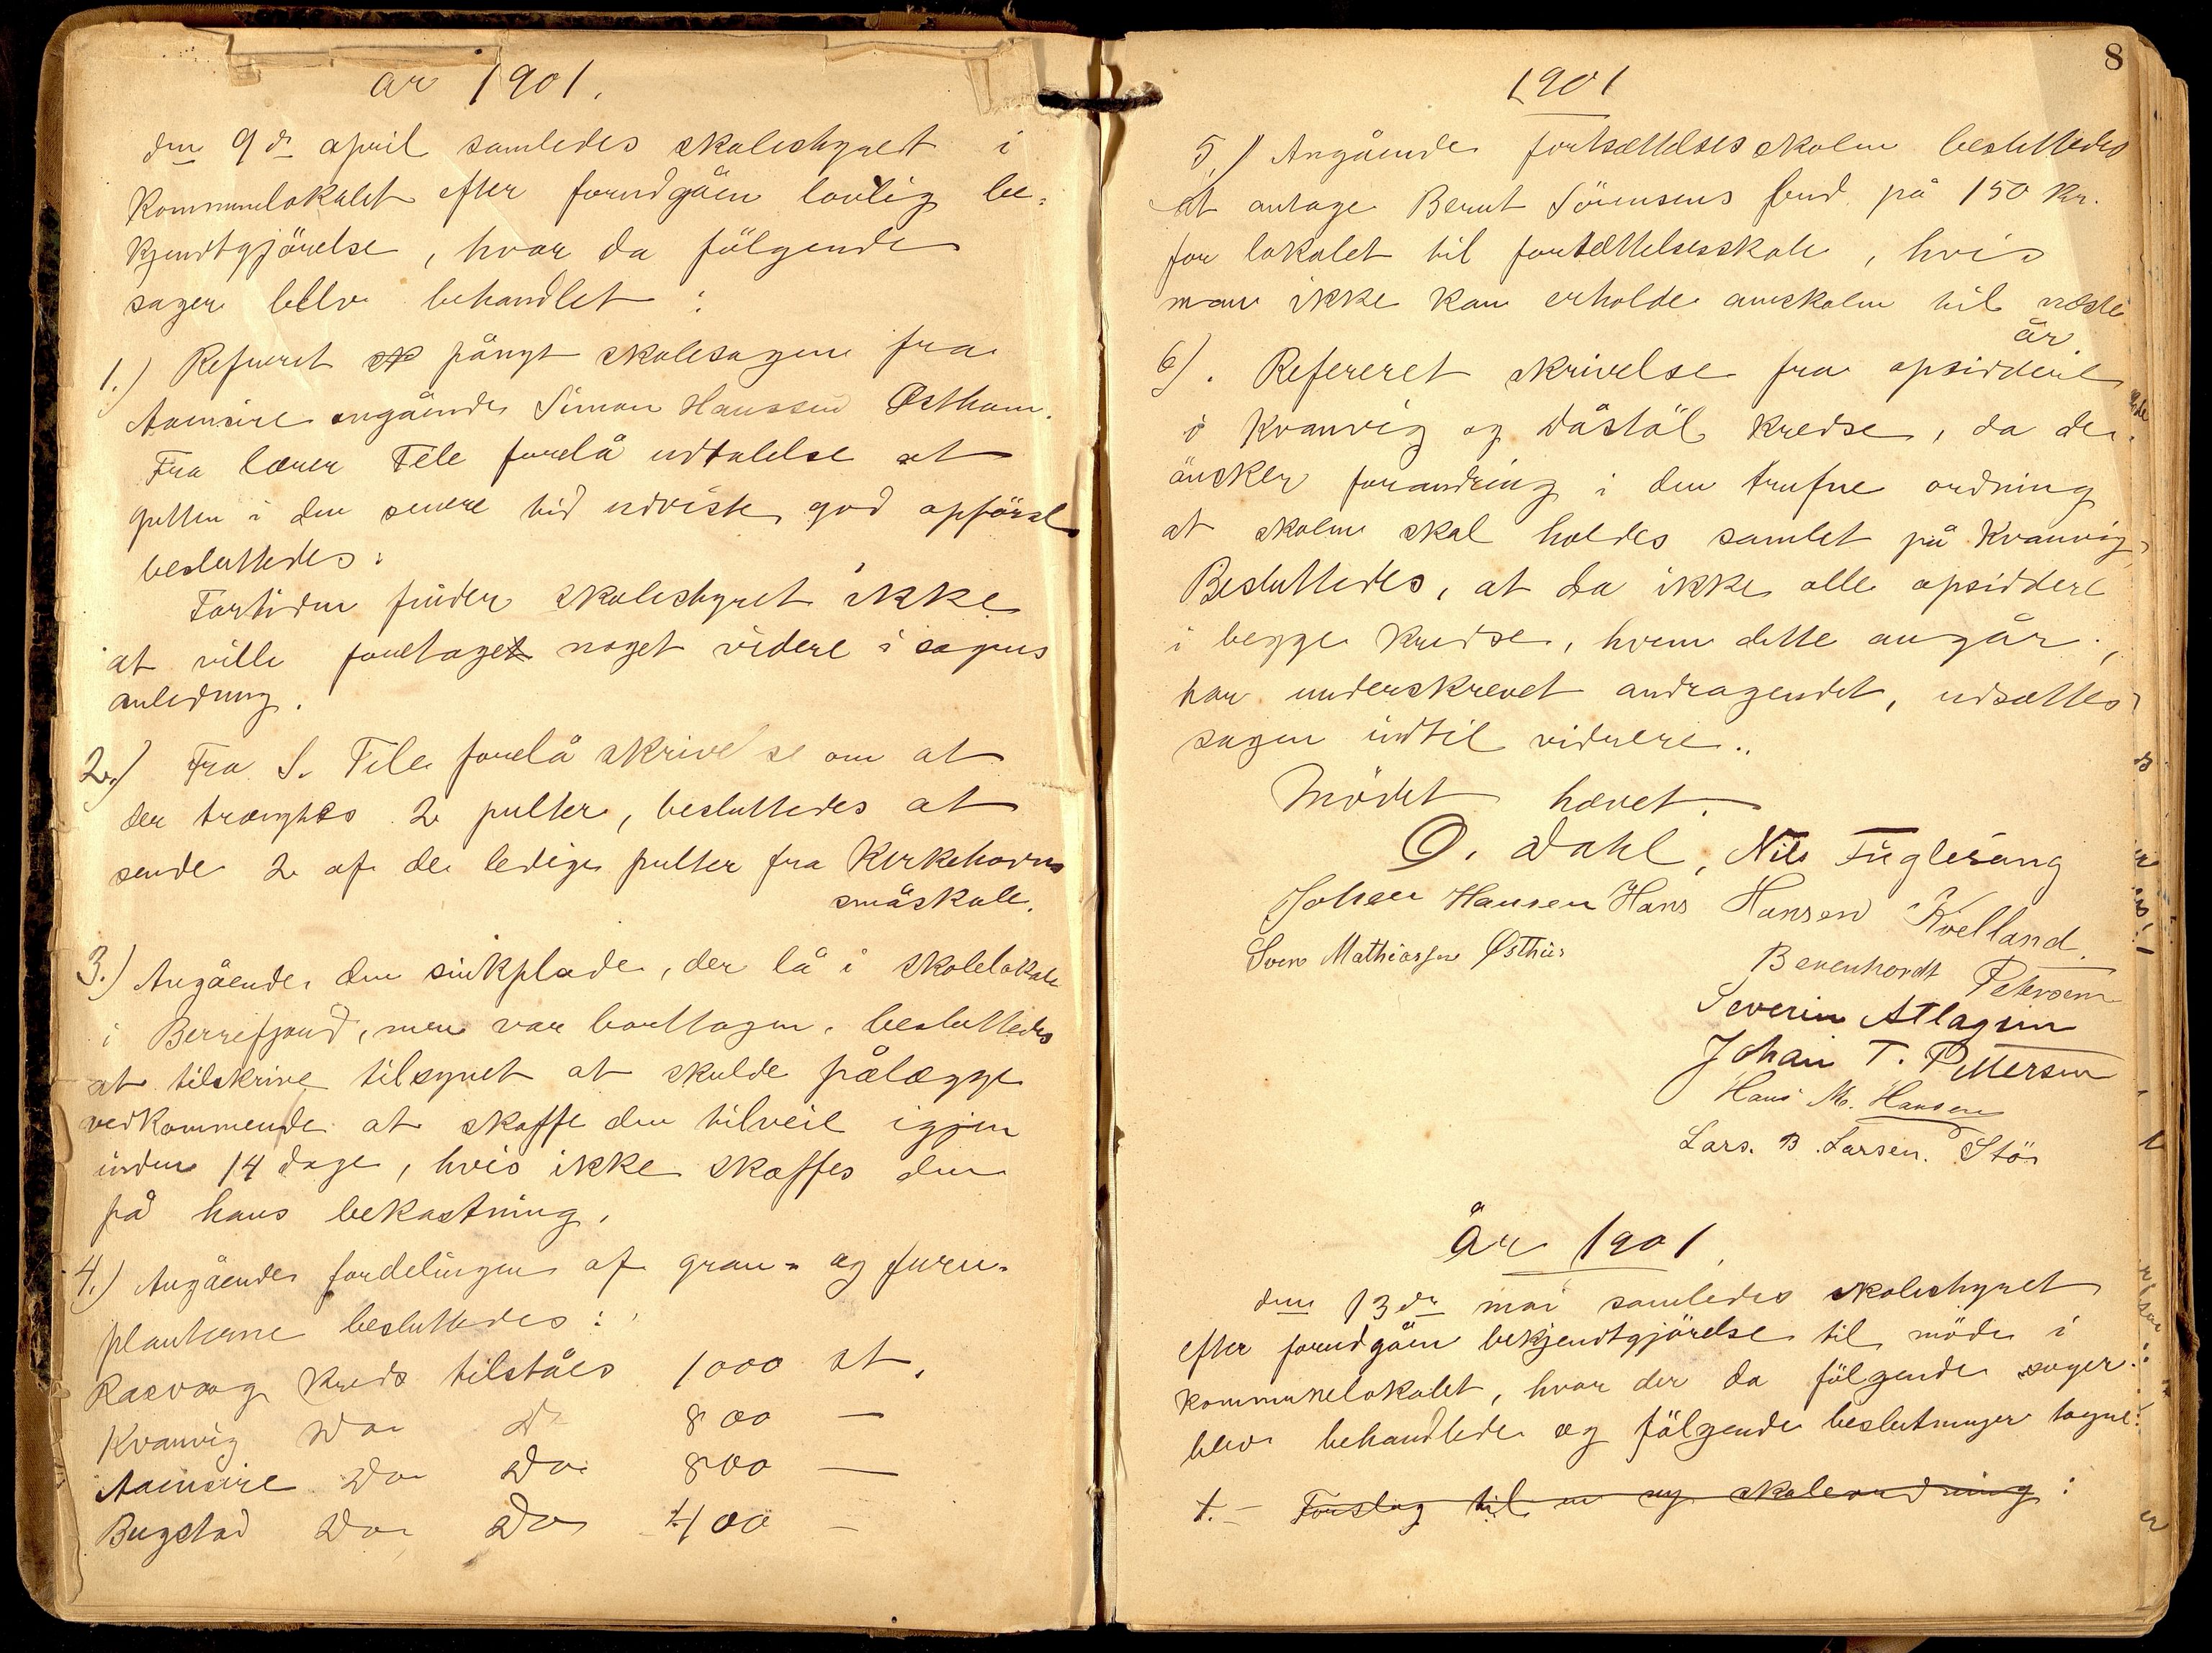 år 1901.
den 9de april samledes skolestyret i
Kommunelokalet efter forudgåen lovlig be-
kjendtgjörelse, hvor da fölgende
sager blev behandlet:
1.) Refereret sk pångt skolesagen fra
Aaensire angående Simon Hanssen Østhom.
Fra lærer Tele forelå udtalelse at
gutten i den senere tid udviste god opförsel
besluttedes:
Fortiden finder skolestyret ikke
at ville foretaget noget videre i sagens
anledning.
2.) Fra S. Tele forelå skrivelse om at
der trængtes 2 pulter, besluttedes at
sende 2 af de ledige pulter fra Kirkehavns
småskole.
3.) Angående den sinkplade, der lå i skolelokale
i Berrefjord, men var borttagen, besluttedes
at tilskrive tilsynet at skulde pålægge
vedkommende at skaffe den tilveie igjen
inden 14 dage, hvis ikke skaffes den
på hans bekostning.
4.) Angående fordelingen af gran- og furu-
planterne besluttedes:
Rasvaag kreds tilståes 1000 st.
Kvanvig Do D 800 —
Aaensire Do Do 800 —
Bugstad Do Do 400 —
8
1901
5.) Angående fortsættelsesskolen besluttedes
at antage Bernt Sörensens bud på 150 kr.
for lokalet til fortsættelsesskole, hvis
man ikke kan erholde amtskolen til næste
år.
6). Refereret skrivelse fra opsiddere
i Kvanvig og Dåstöl kredse, da de
önsker forandring i den trufne ordning
at skolen skal holdes samlet på Kvanvig,
Besluttedes, at da ikke alle opsiddere
i begge kredse, hvem dette angår,
har underskrevet andragendet, udsættes
sagen indtil videre..
Mödet hævet.
O. Dahl, Nils Fuglesang
Johan Hansen Hans Hansen Kvelland
Sven Mathiassen Østhus
Berenhardt Petersen
Severin Atlagsen
Johan T. Pettersen
Hans M. Hansen
Lars. B. Larsen. Stör
År 1901
den 13de mai samledes skolestyret
efter forudgåen bekjendtgjörelse til möde i
kommunelokalet, hvor der da fölgende sager
blev behandlede og fölgende beslutninger tagne:
1. - Forslag til en ny skoleordning: